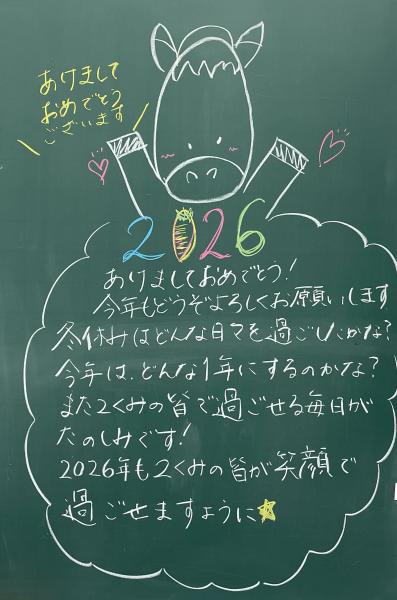 あけまして
おめでとう
ございます
2026
あけましておめでとう!
今年もどうぞよろしくお願いします
冬休みはどんな日々を過ごしたかな?
今年は、どんな1年にするのかな?
また2くみの皆で過ごせる毎日が
たのしみです!
2026年も2くみの皆が笑顔で
過ごせますように